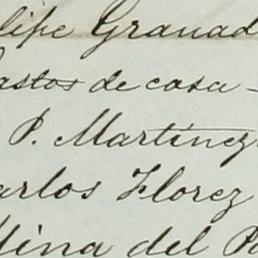 lipe Granad
astos de casa -
P. Martinez
arlos Florez
Mina del P